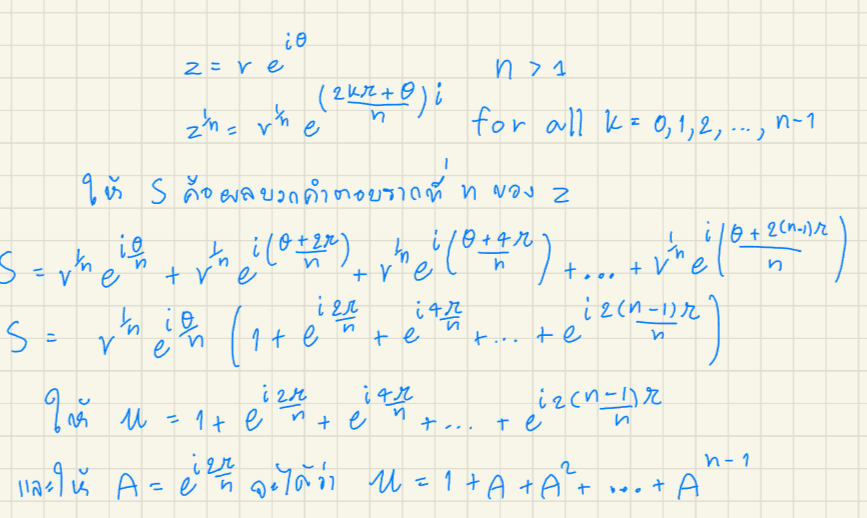 z = r e^{iθ} n > 1
z^{1/n} = r^{1/n} e^{(\frac{2kπ + θ}{n}) i} for all k = 0,1,2, ..., n-1
ให้ S คือผลบวกคำตอบรากที่ n ของ z
S = r^{1/n} e^{i\frac{θ}{n}} + r^{1/n} e^{i(\frac{θ + 2π}{n})} + r^{1/n} e^{i(\frac{θ + 4π}{n})} + ... + r^{1/n} e^{i(\frac{θ + 2(n-1)π}{n})}
S = r^{1/n} e^{i\frac{θ}{n}} (1 + e^{i\frac{2π}{n}} + e^{i\frac{4π}{n}} + ... + e^{i\frac{2(n-1)π}{n}})
ให้ u = 1 + e^{i\frac{2π}{n}} + e^{i\frac{4π}{n}} + ... + e^{i\frac{2(n-1)π}{n}}
และให้ A = e^{i\frac{2π}{n}} จะได้ว่า u = 1 + A + A^2 + ... + A^{n-1}